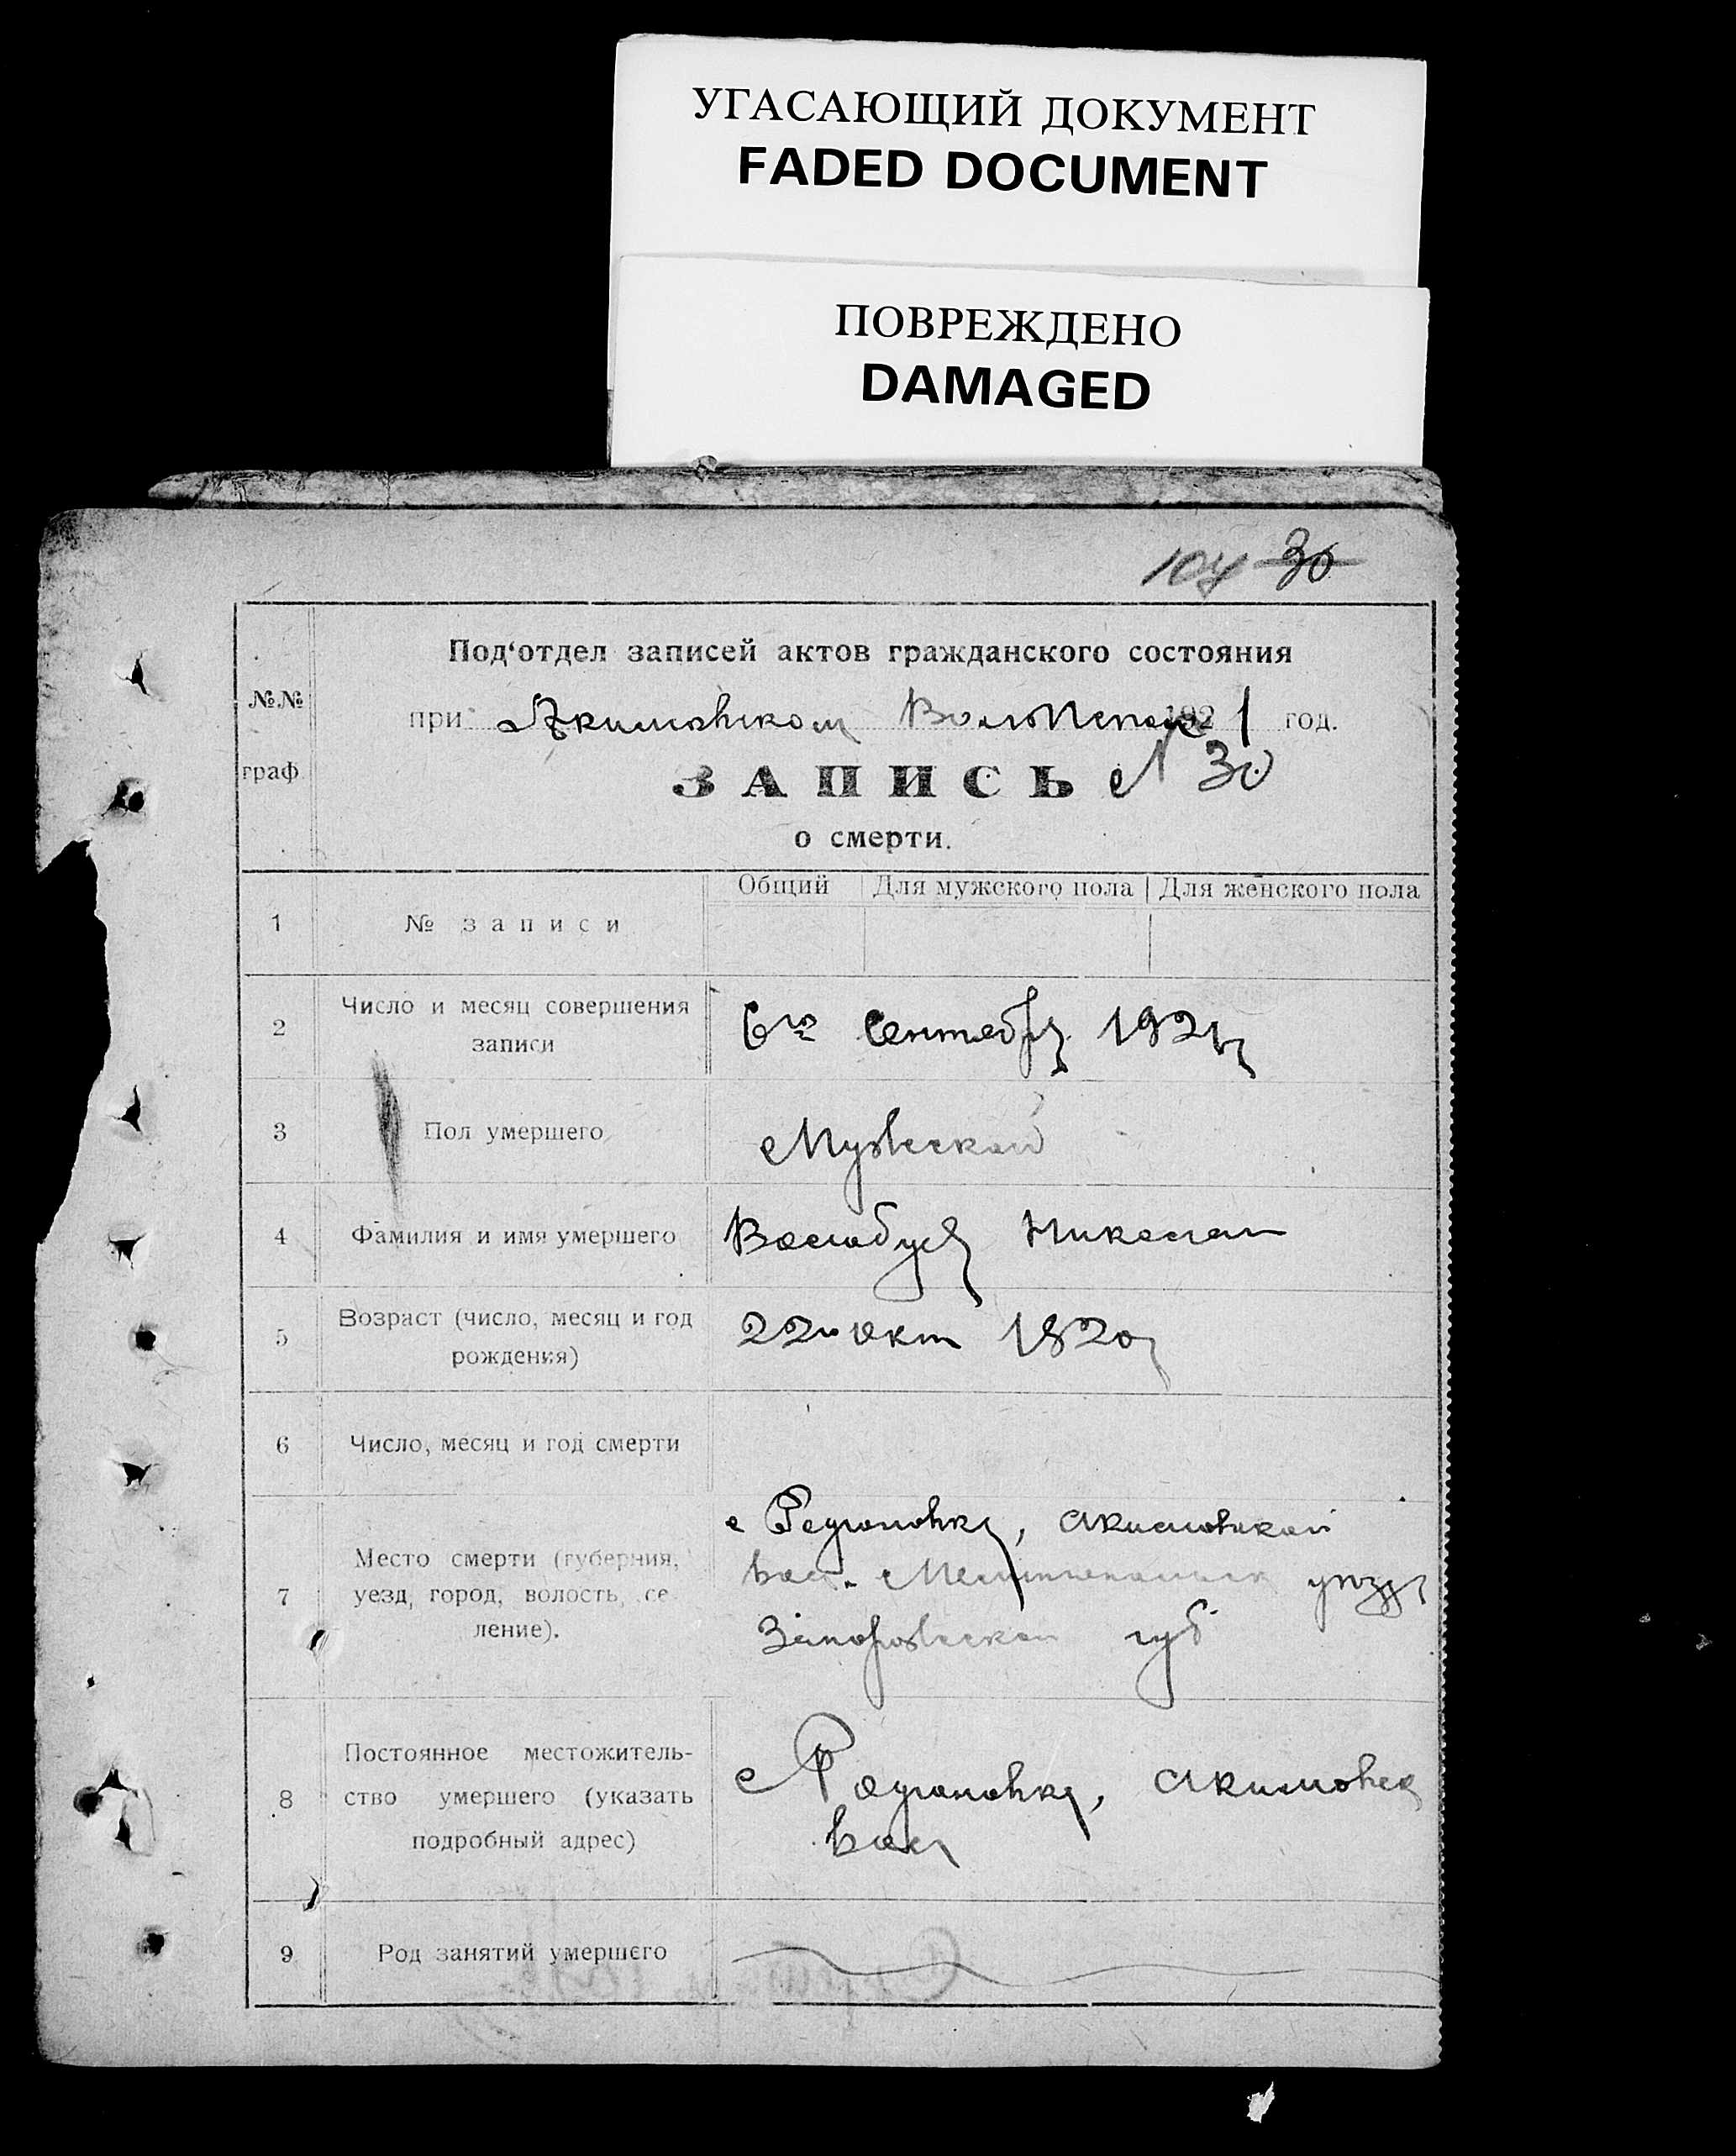 УГАСАЮЩИЙ ДОКУМЕНТ
FADED DOCUMENT
ПОВРЕЖДЕНО
DAMAGED
104 30
Под‘отдел записей актов гражданского состояния
№№
при Акимовском 192 1 год.
граф
ЗАПИСЬ N 30
о смерти.
Общий Для мужского пола Для женского пола
1 № записи
2 Число и месяц совершения
записи
6го Сентября 1921 г
3 Пол умершего
Мужской
4 Фамилия и имя умершего
Николай
5 Возраст (число, месяц и год
рождения)
22го окт 1820 г
6 Число, месяц и год смерти
7 Место смерти (губерния,
уезд, город, волость, се-
ление).
с Родионовка, Акимовской
вол. Мелитопольск уезда
Запорожской губ
8 Постоянное местожитель-
ство умершего (указать
подробный адрес)
с Родионовка, Акимовск
вол
9 Род занятий умершего